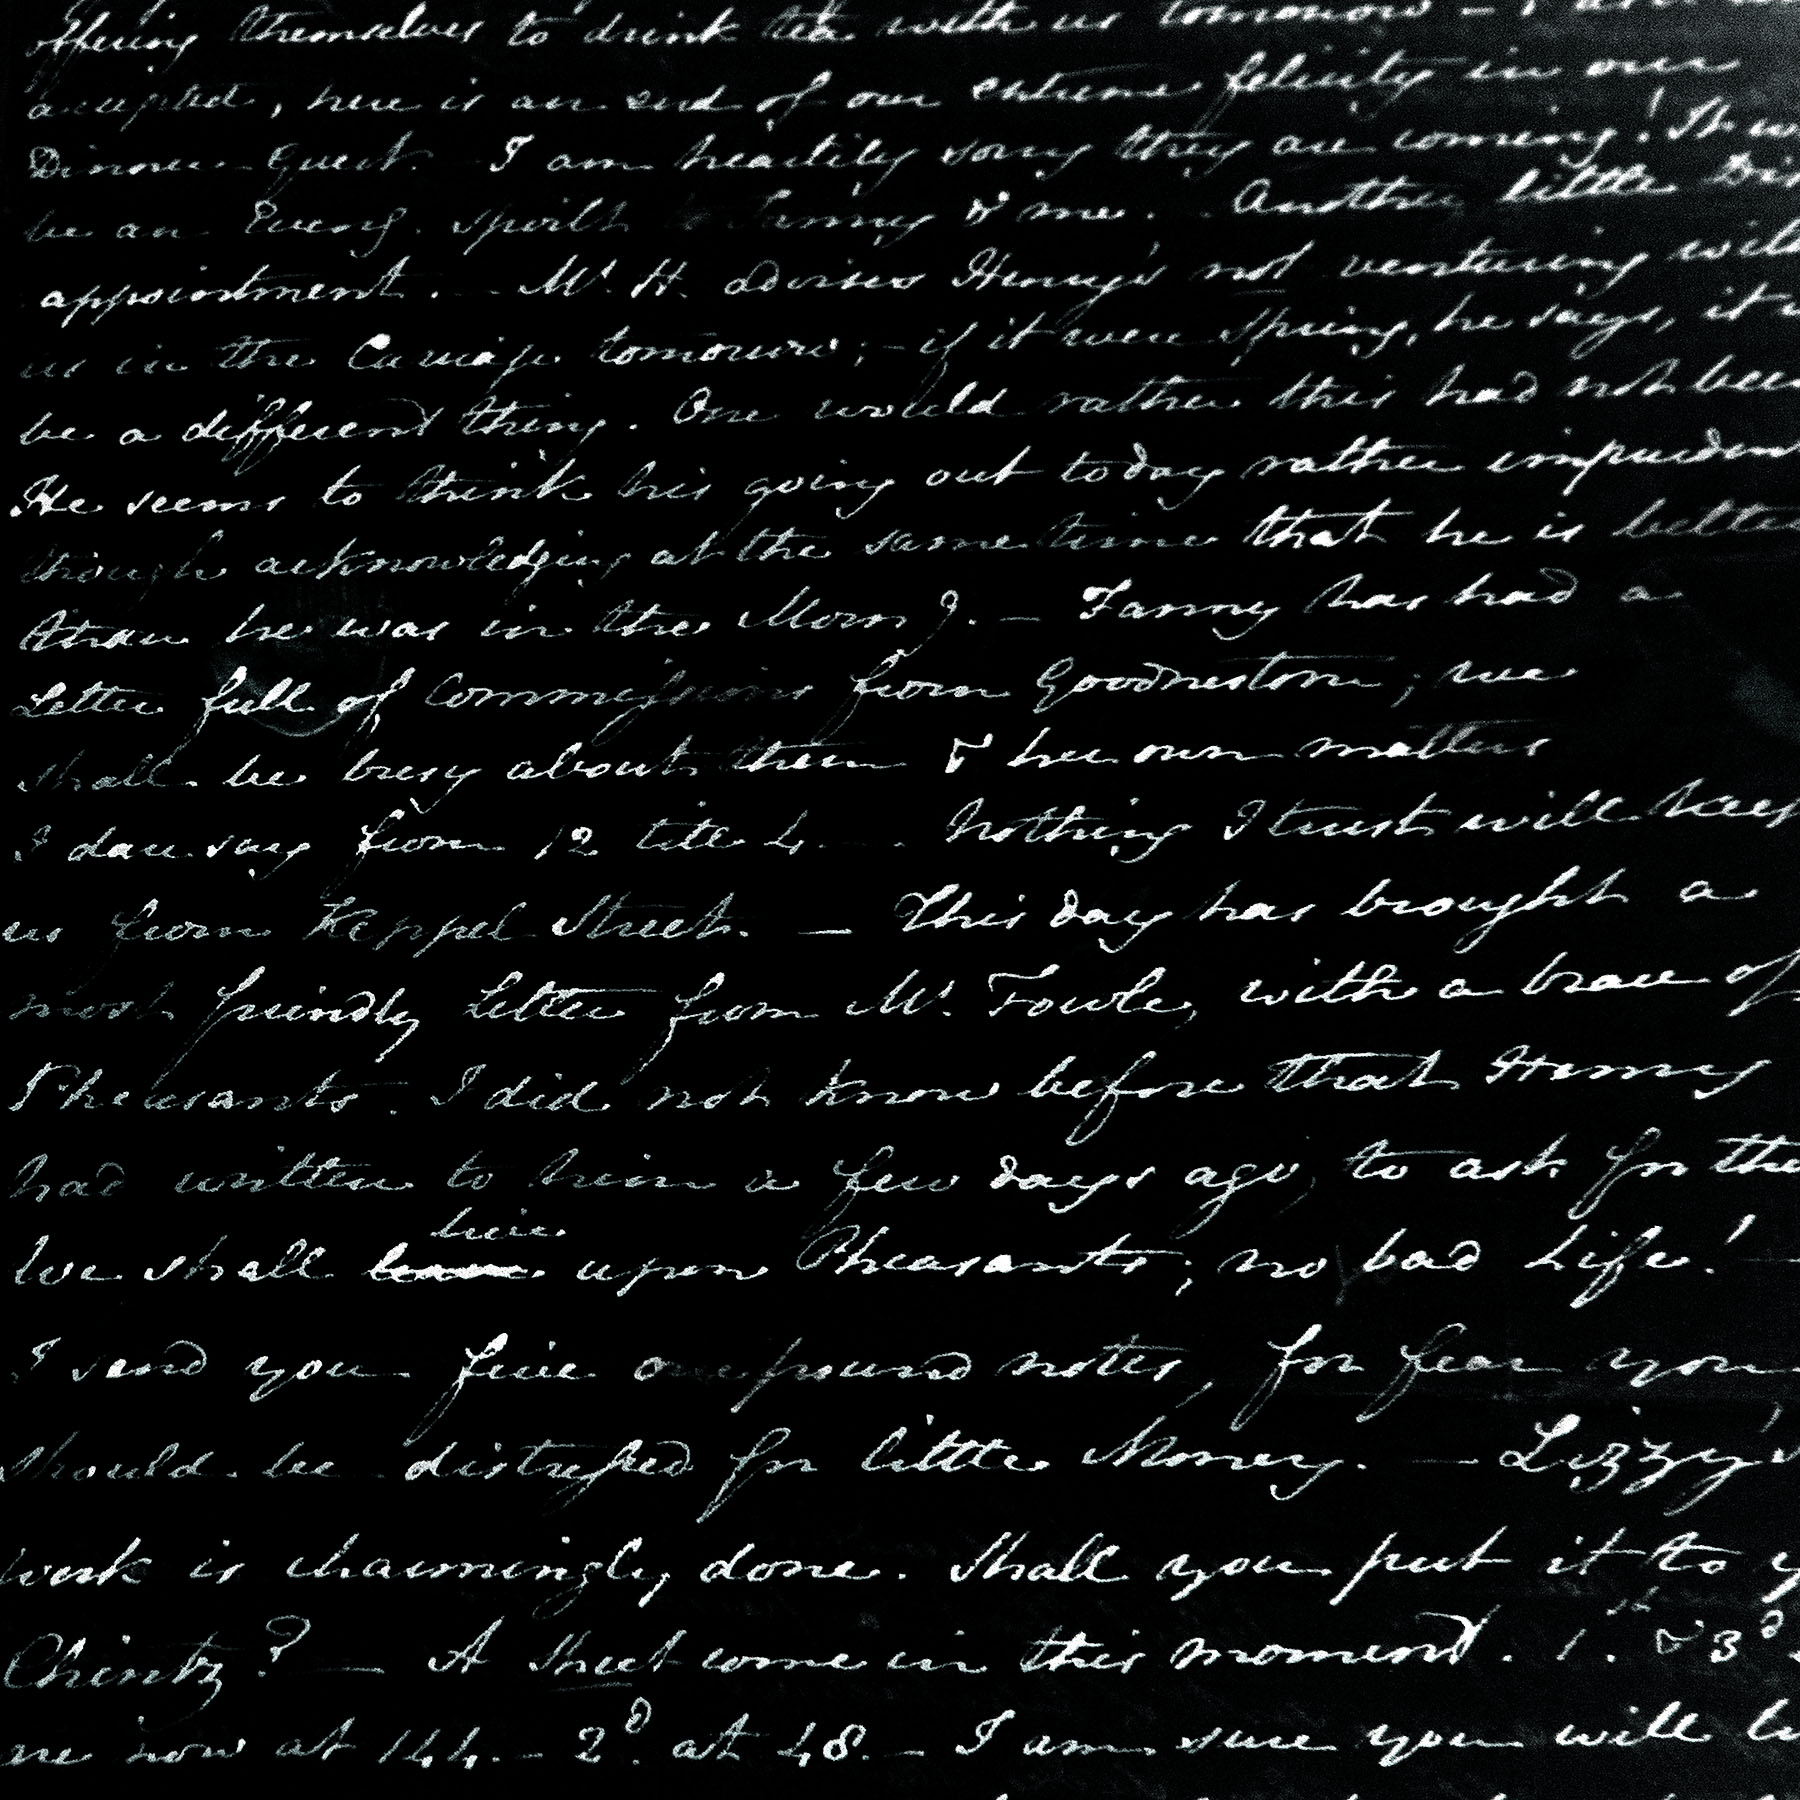 offering themselves to drink tea with us tomorrow —
accepted, here is an end of our extreme felicity in our
Dinner-Guest. I am heartily sorry they are coming! It w
be an Eveng. spoilt to Fanny & me. Another little Dis
appointment. — Mr. H. advises Henry's not venturing with
us in the Carriage tomorrow; — if it were Spring, he says, it w
be a different thing. One would rather this had not been
He seems to think his going out today rather imprudent
though acknowledging at the same time that he is better
than he was in the Morng. — Fanny has had a
Letter full of Commissions from Goodnestone; we
shall be busy about them & her own matters
I dare say from 12 till 4. — Nothing I trust will keep
us from Keppel Street. — This day has brought a
most friendly Letter from Mr. Fowle, with a brace of
Pheasants. I did not know before that Henry
had written to him a few days ago, to ask for the
live
We shall upon Pheasants; no bad Life! —
I send you five one pound notes, for fear you
should be distressed for little Money. — Lizzy's
work is charmingly done. Shall you put it to y
Chintz? — A Sheet come in this moment. 1st. & 3d
are now at 144. — 2d. at 48. — I am sure you will